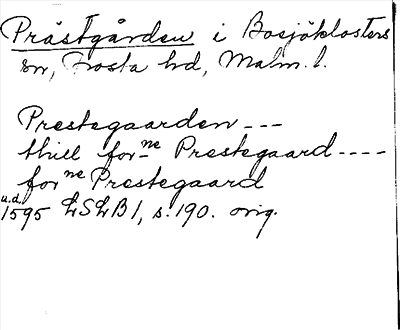 Prästgården i Bosjöklosters
sn, Frosta hd, Malm. l.
Prestegaarden ---
thill for-ne Prestegaard ----
for ne Prestegaard
u.d.
1595 LSLB 1, s. 190. orig.